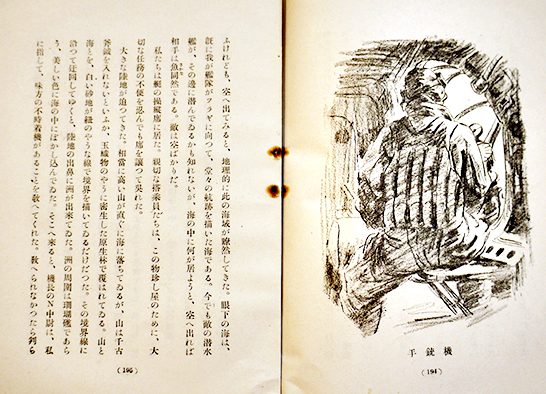 機銃手
（194）
ふけれども、空へ出てみると、地理的に此の海域が瞭然としてきた。眼下の海は、
既に我が艦隊がツラギに向つて、堂々の航跡を描いた海である。今でも敵の潜水
艦が、その辺に潜んでゐるかも知れないが、海の中に何が居ようと、空へ出れば
相手は魚同然である。敵は空ばかりだ。
私たちは艇の操縦席に居た。親切な搭乗員たちは、この物珍し屋のために、大
切な任務の不便を忍んでも席を譲つて呉れた。
大きな陸地が迫つてきた。相當に高い山が直ぐに海に落ちてゐるが、山は千古
斧鉞を入れないといふか、玉織物のやうに密生した原生林で覆はれてゐる。山と
海とを、白い砂地が縁のやうな線で境界を描いてゐるだけだつた。その境界線に
沿つて迂回してゆくと、陸地の出鼻に洲が出来てゐた。洲の周圍は珊瑚礁であら
う、美しい色に海の中にぼかし込んでゐた。そこへ來ると、機長のN中尉は、私
に指して、味方の不時着機があることを敎へてくれた。敎へられなかつたら到ら
（195）